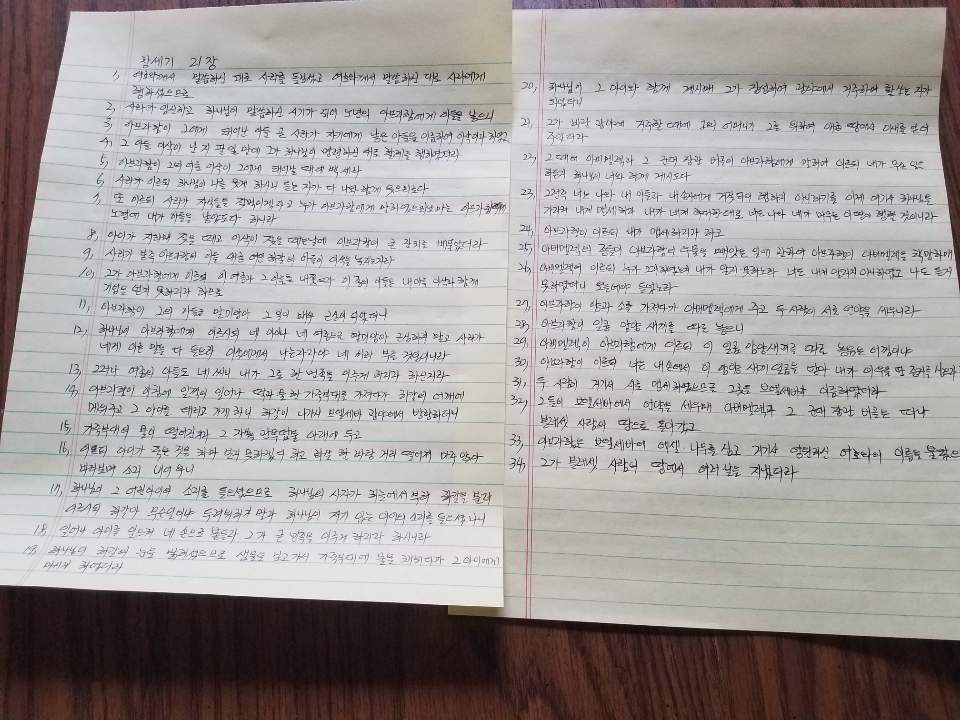 창세기 21장
1, 여호와께서 말씀하신 대로 사라를 돌보셨고 여호와께서 말씀하신 대로 사라에게
행하셨으므로
2, 사라가 임신하고 하나님이 말씀하신 시기가 되어 노년의 아브라함에게 아들을 낳으니
3, 아브라함이 그에게 태어난 아들 곧 사라가 자기에게 낳은 아들을 이름하여 이삭이라 하였고
4, 그 아들 이삭이 난 지 팔 일 만에 그가 하나님이 명령하신 대로 할례를 행하였더라
5, 아브라함이 그의 아들 이삭이 그에게 태어날 때에 백 세라
6, 사라가 이르되 하나님이 나를 웃게 하시니 듣는 자가 다 나와 함께 웃으리로다
7, 또 이르되 사라가 자식들을 젖먹이겠다고 누가 아브라함에게 말하였으리요마는 아브라함의
노년에 내가 아들을 낳았도다 하니라
8, 아이가 자라매 젖을 떼고 이삭이 젖을 떼는 날에 아브라함이 큰 잔치를 베풀었더라
9, 사라가 본즉 아브라함의 아들 애굽 여인 하갈의 아들이 이삭을 놀리는지라
10, 그가 아브라함에게 이르되 이 여종과 그 아들을 내쫓으라 이 종의 아들은 내 아들 이삭과 함께
기업을 얻지 못하리라 하므로
11, 아브라함이 그의 아들로 말미암아 그 일이 매우 근심이 되었더니
12, 하나님이 아브라함에게 이르시되 네 아이나 네 여종으로 말미암아 근심하지 말고 사라가
네게 이른 말을 다 들으라 이삭에게서 나는 자라야 네 씨라 부를 것임이니라
13, 그러나 여종의 아들도 네 씨니 내가 그로 한 민족을 이루게 하리라 하신지라
14, 아브라함이 아침에 일찍이 일어나 떡과 물 한 가죽부대를 가져다가 하갈의 어깨에
메워주고 그 아이를 데리고 가게 하니 하갈이 나가서 브엘세바 광야에서 방황하더니
15, 가죽부대의 물이 떨어진지라 그 자식을 관목덤불 아래에 두고
16, 이르되 아이가 죽는 것을 차마 보지 못하겠다 하고 화살 한 바탕 거리 떨어져 마주 앉아
바라보며 소리 내어 우니
17, 하나님이 그 어린아이의 소리를 들으셨으므로 하나님의 사자가 하늘에서부터 하갈을 불러
이르시되 하갈아 무슨일이냐 두려워하지 말라 하나님이 저기 있는 아이의 소리를 들으셨나니
18. 일어나 아이를 일으켜 네 손으로 붙들라 그가 큰 민족을 이루게 하리라 하시니라
19. 하나님이 하갈의 눈을 밝히셨으므로 샘물을 보고 가서 가죽부대에 물을 채워다가 그 아이에게
마시게 하였더라
20, 하나님이 그 아이와 함께 계시매 그가 장성하여 광야에서 거주하며 활 쏘는 자가
되었더니
21, 그가 바란 광야에 거주할 때에 그의 어머니가 그를 위하여 애굽 땅에서 아내를 얻어
주었더라
22, 그 때에 아비멜렉과 그 군대 장관 비골이 아브라함에게 말하여 이르되 네가 무슨 일을
하든지 하나님이 너와 함께 계시도다
23, 그런즉 너는 나와 내 아들과 내 손자에게 거짓되이 행하지 아니하기를 이제 여기서 하나님을
가리켜 내게 맹세하라 내가 네게 후대한 대로 너도 나와 네가 머무는 이 땅에 행할 것이니라
24, 아브라함이 이르되 내가 맹세하리라 하고
25, 아비멜렉의 종들이 아브라함의 우물을 빼앗은 일에 관하여 아브라함이 아비멜렉을 책망하매
26, 아비멜렉이 이르되 누가 그리하였는지 내가 알지 못하노라 너도 내게 알리지 아니하였고 나도 듣지
못하였더니 오늘에야 들었노라
27, 아브라함이 양과 소를 가져다가 아비멜렉에게 주고 두 사람이 서로 언약을 세우니라
28, 아브라함이 일곱 암양 새끼를 따로 놓으니
29, 아비멜렉이 아브라함에게 이르되 이 일곱 암양새끼를 따로 놓음은 어찜이냐
30, 아브라함이 이르되 너는 내 손에서 이 암양 새끼 일곱을 받아 내가 이 우물 판 증거를 삼으라
31, 두 사람이 거기서 서로 맹세하였으므로 그곳을 브엘세바라 이름하였더라
32, 그들이 브엘세바에서 언약을 세우매 아비멜렉과 그 군대 장관 비골은 떠나
블레셋 사람의 땅으로 돌아갔고
33, 아브라함은 브엘세바에 에셀 나무를 심고 거기서 영원하신 여호와의 이름을 불렀으며
34, 그가 블레셋 사람의 땅에서 여러 날을 지냈더라